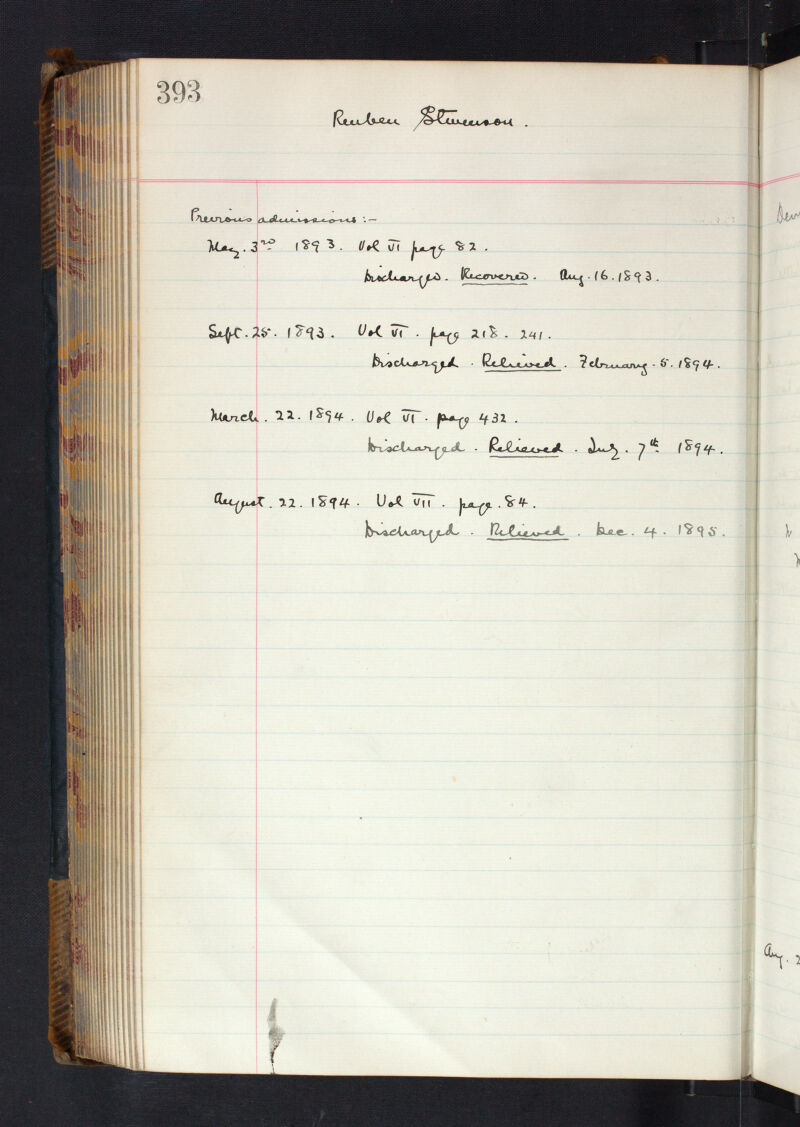 393
Reuben Stevenson.
Previous admissions:-
May. 3rd 1893. Vol VI page 82.
Discharged. Recovered. Aug. 16. 1893.
Sept. 25. 1893. Vol VI. page 218. 241.
Discharged. Relieved. February. 5. 1894.
March. 22. 1894. Vol VI. page 432.
Discharged. Relieved. July. 7th 1894.
August. 22. 1894. Vol VII. page. 84.
Discharged. Relieved. Dec. 4. 1895.
Aug. 2